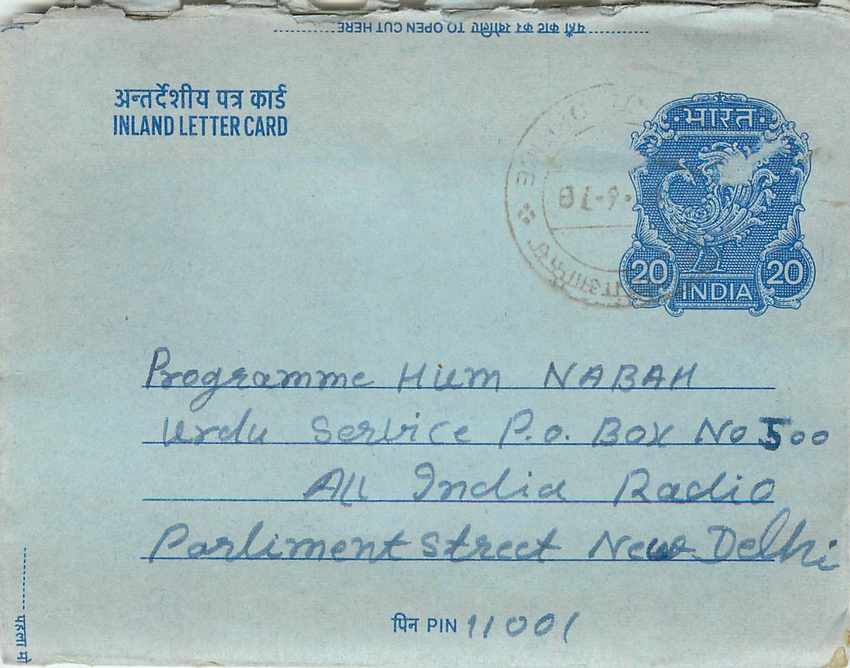 यहाँ काट कर खोलिए TO OPEN CUT HERE
अन्तर्देशीय पत्र कार्ड
INLAND LETTER CARD
भारत
20 20
INDIA
Programme Hum NABAH
Urdu Service P.o. Box No 500
All India Radio
Parliment Street New Delhi
पिन PIN 11001
पहला मो